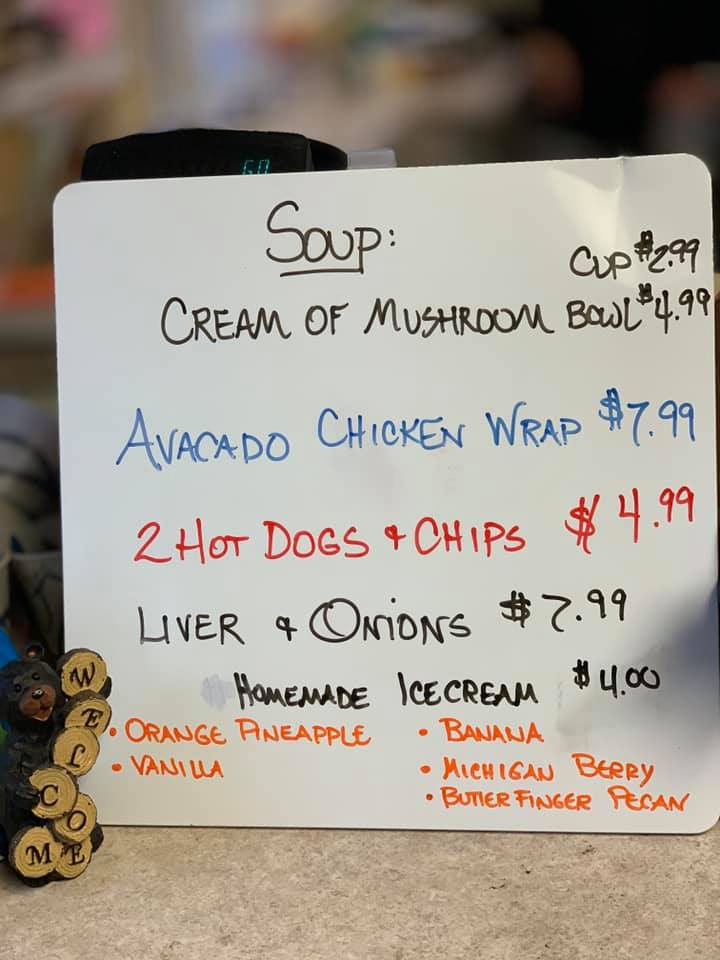 60
Soup:
Cup $2.99
Cream of Mushroom Bowl $4.99
Avacado Chicken Wrap $7.99
2 Hot Dogs & Chips $4.99
Liver & Onions $7.99
Homemade Icecream $4.00
• Orange Pineapple
• Vanilla
• Banana
• Michigan Berry
• Butterfinger Pecan
WELCOME